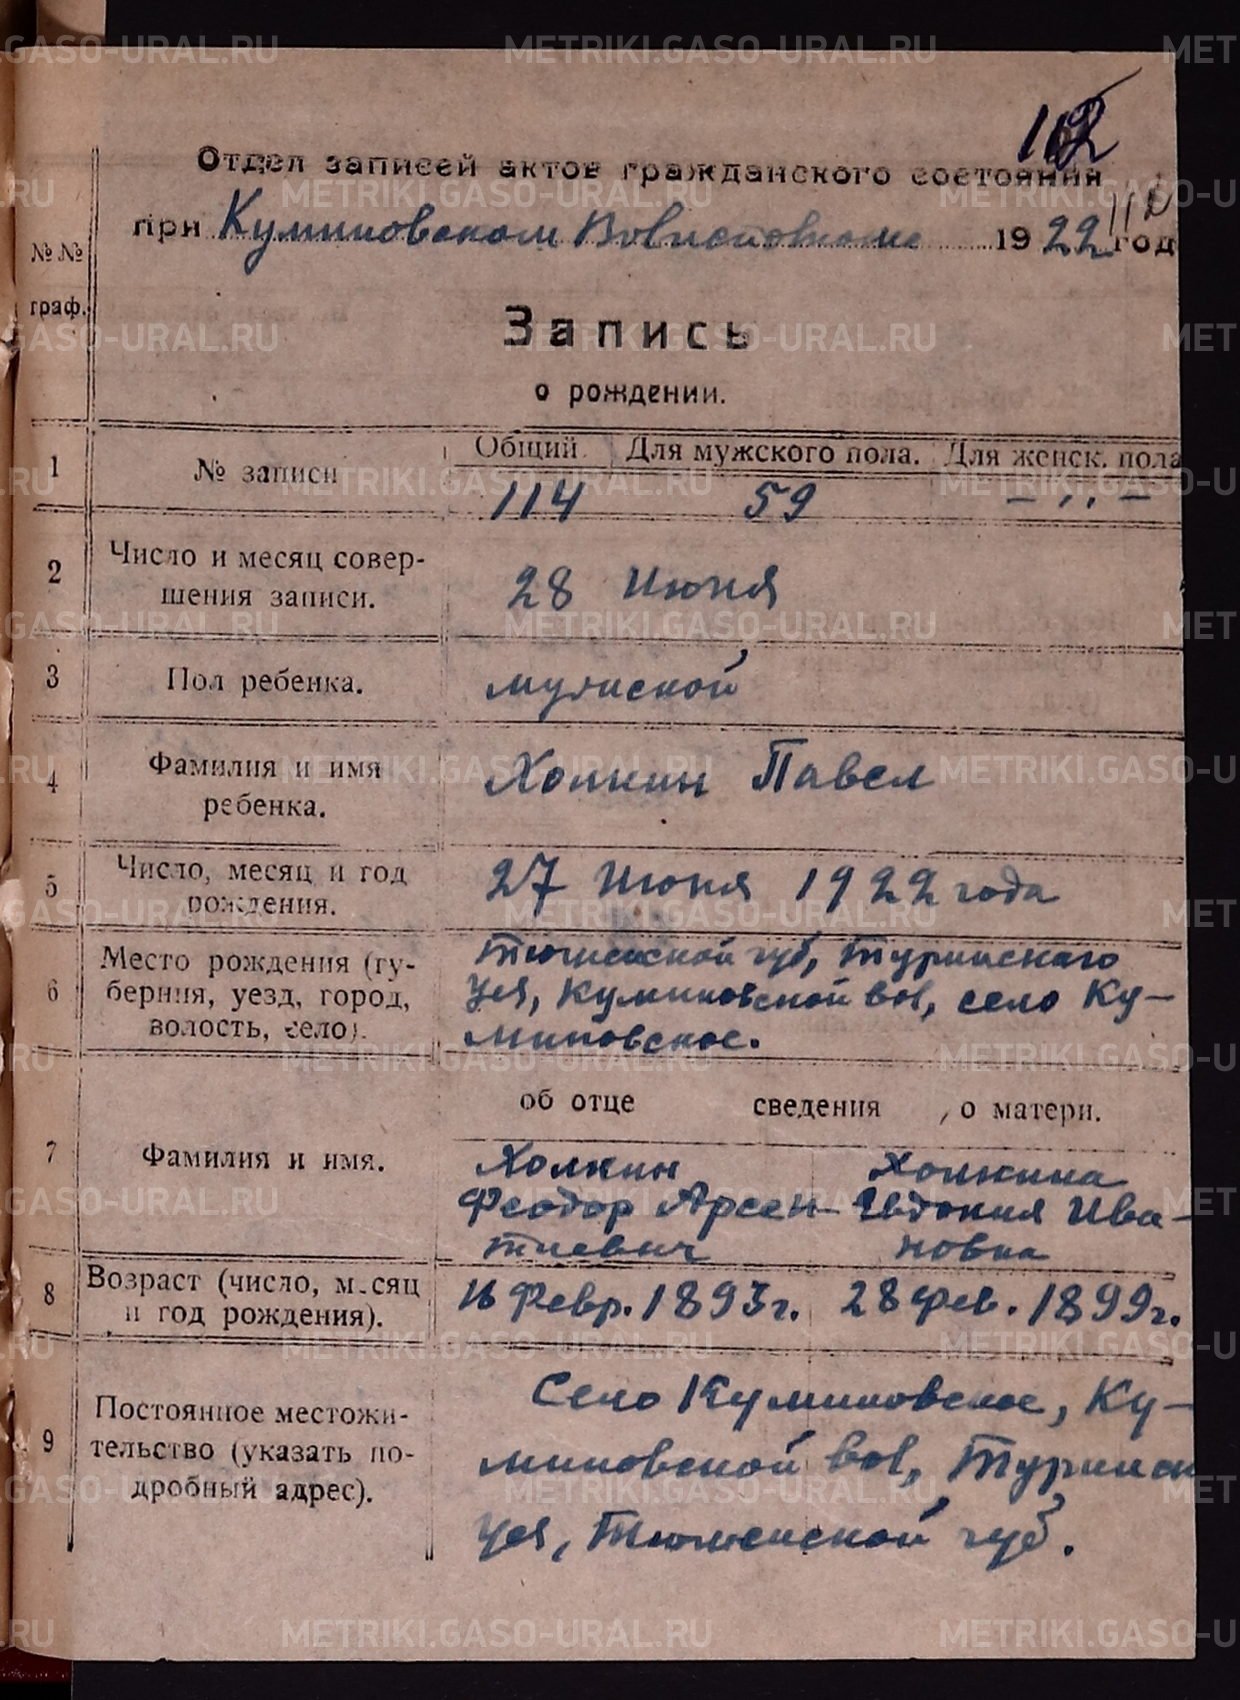 112
Отдел записей актов гражданского состояния
при Куминовском Волисполкоме 1922 год
№№
граф.
Запись
о рождении.
Общий Для мужского пола. Для женск. пола
1 № записи 114 59 — ,, —
2 Число и месяц совер-
шения записи. 28 Июня
3 Пол ребенка. мужской
4 Фамилия и имя
ребенка. Холкин Павел
5 Число, месяц и год
рождения. 27 Июня 1922 года
6 Место рождения (гу-
берния, уезд, город,
волость, село).
Тюменской губ, Туринскаго
уез, Куминовской вол, село Ку-
миновское.
об отце сведения о матери.
7 Фамилия и имя.
Холкин
Феодор Арсен-
тиевич
Холкина
Евдокия Ива-
новна
8 Возраст (число, месяц
и год рождения). 16 Февр. 1893 г. 28 фев. 1899 г.
9 Постоянное местожи-
тельство (указать по-
дробный адрес).
Село Куминовское, Ку-
миновской вол, Туринск
уез, Тюменской губ.
METRIKI.GASO-URAL.RU